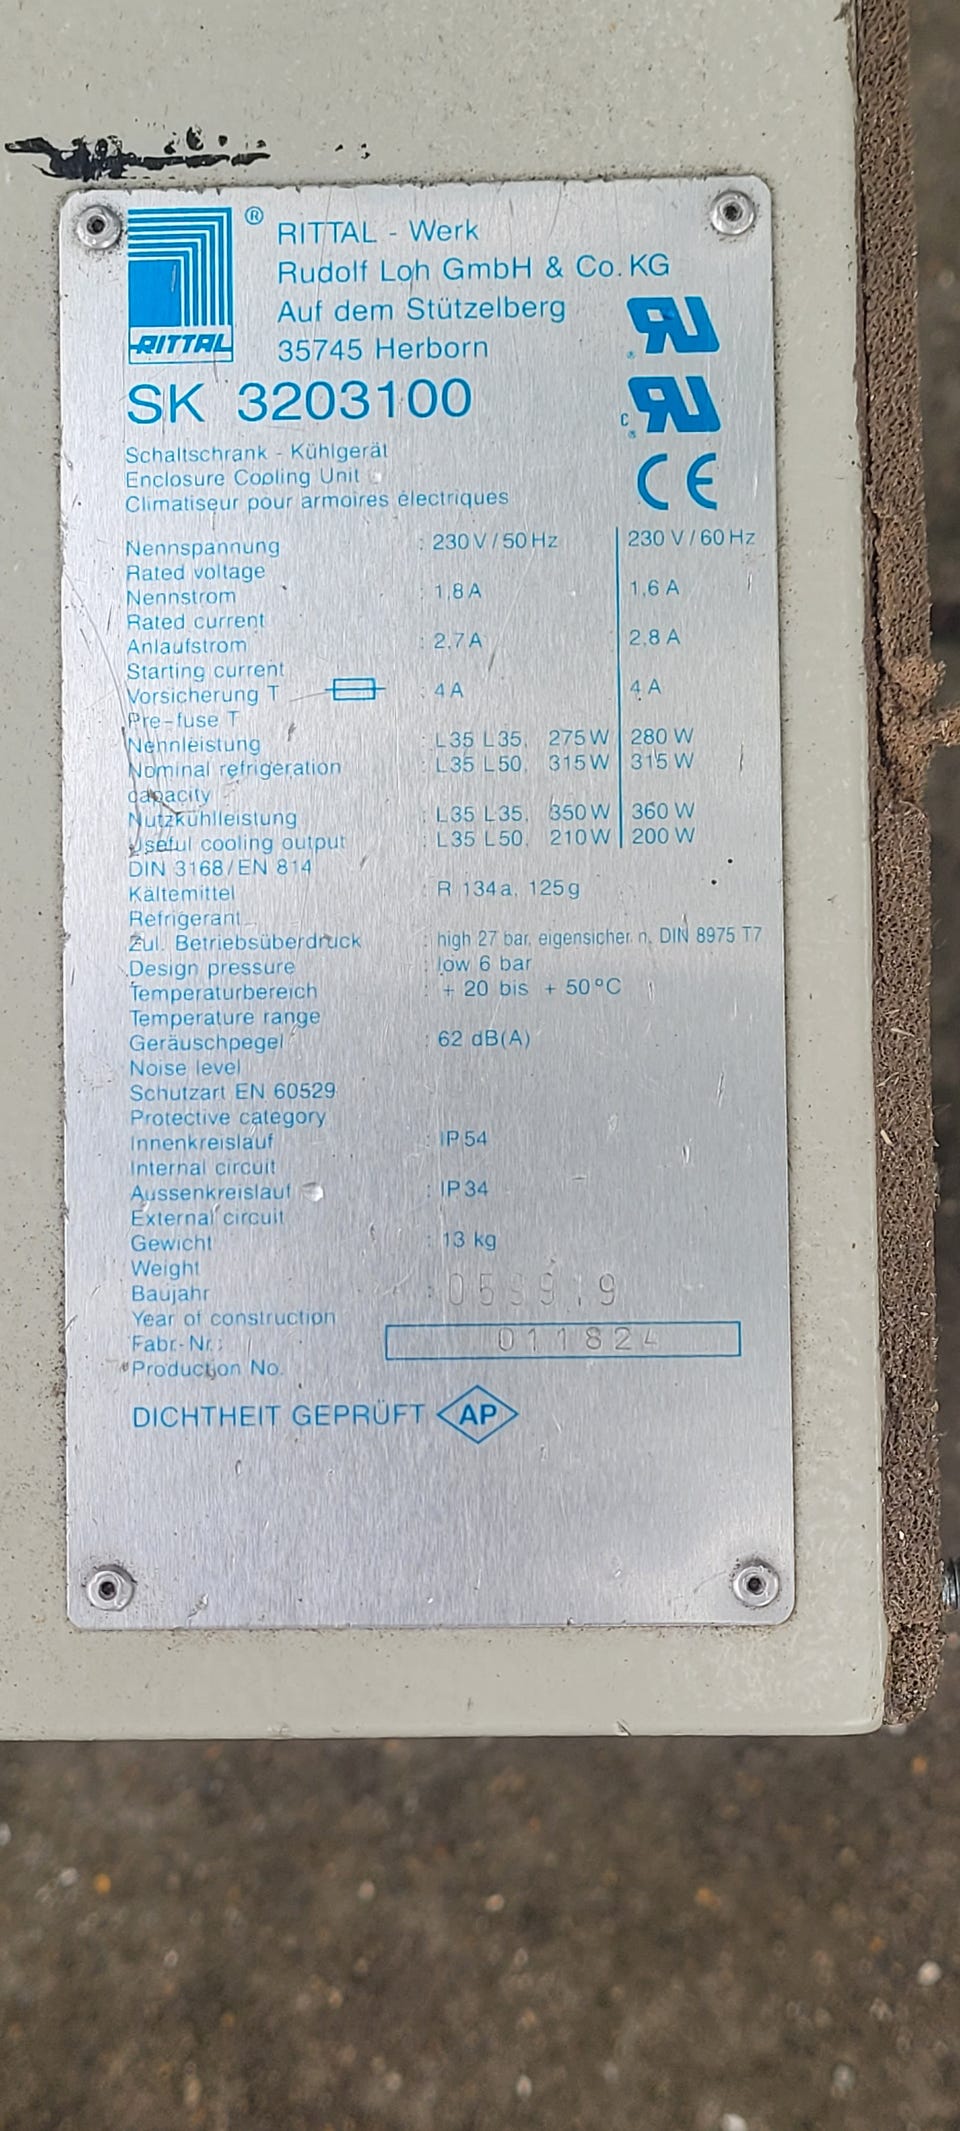 RITTAL
®
RITTAL - Werk
Rudolf Loh GmbH & Co. KG
Auf dem Stützelberg
35745 Herborn
SK 3203100
CE
Schaltschrank - Kühlgerät
Enclosure Cooling Unit
Climatiseur pour armoires électriques
Nennspannung : 230 V / 50 Hz 230 V / 60 Hz
Rated voltage
Nennstrom : 1,8 A 1,6 A
Rated current
Anlaufstrom : 2,7 A 2,8 A
Starting current
Vorsicherung T : 4 A 4 A
Pre-fuse T
Nennleistung : L35 L35, 275 W 280 W
Nominal refrigeration : L35 L50, 315 W 315 W
capacity
Nutzkühlleistung : L35 L35, 350 W 360 W
Useful cooling output : L35 L50, 210 W 200 W
DIN 3168/EN 814
Kältemittel : R 134a, 125g
Refrigerant
Zul. Betriebsüberdruck : high 27 bar, eigensicher n. DIN 8975 T7
Design pressure : low 6 bar
Temperaturbereich : + 20 bis + 50°C
Temperature range
Geräuschpegel : 62 dB(A)
Noise level
Schutzart EN 60529
Protective category
Innenkreislauf : IP 54
Internal circuit
Aussenkreislauf : IP 34
External circuit
Gewicht : 13 kg
Weight
Baujahr :
Year of construction
Fabr.-Nr.: 011824
Production No.
DICHTHEIT GEPRÜFT AP